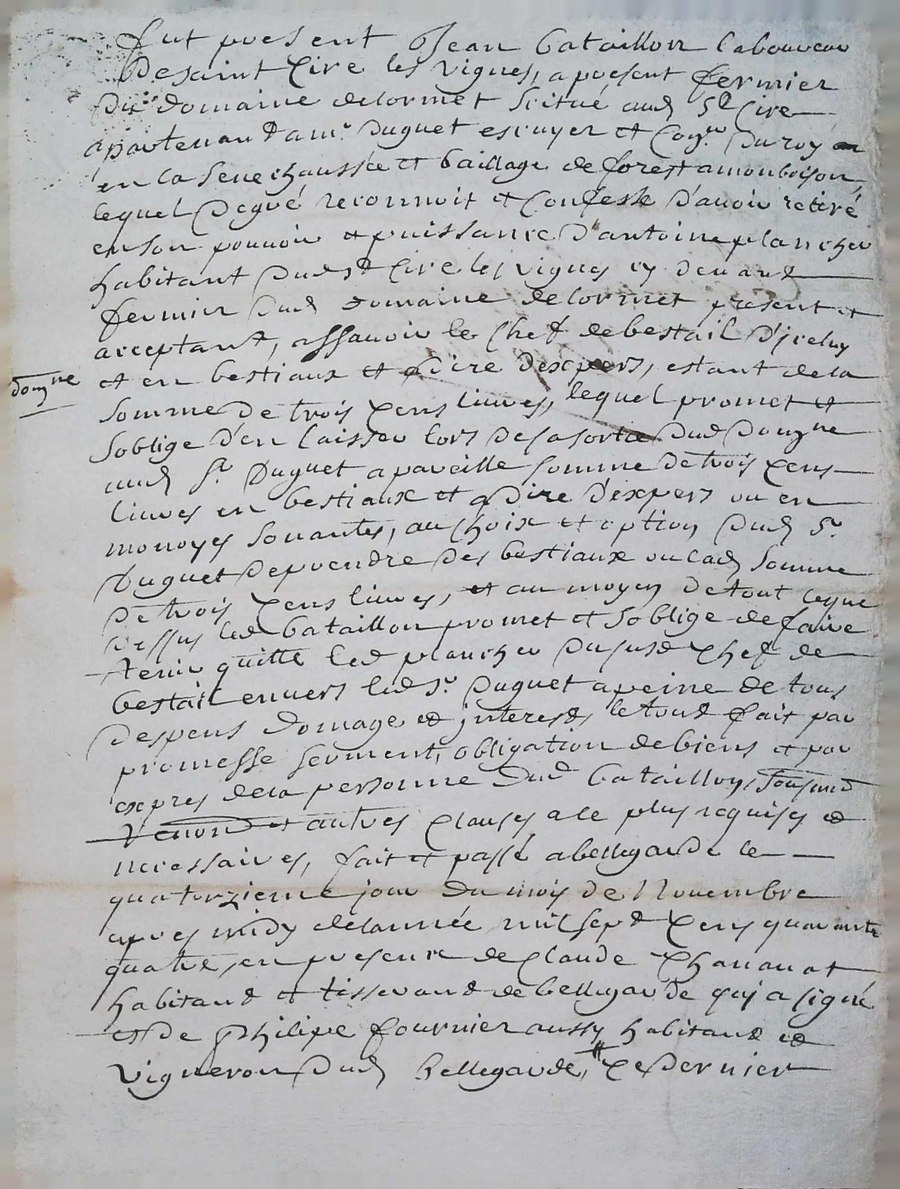 fut present Jean bataillon laboureur
de saint Cire les vignes, a present fermier
du domaine delormet scitué aud st Cire
appartenant a mr. Duguet escuyer et Cog.r du roy
en la senechaussée et baillage de forest a monboison
lequel de gré reconnoit et confesse d'avoir retiré
en son pouvoir et puissance d'antoine plancher
habitant dud st Cire les vignes cy devant
fermier dud domaine delormet present et
acceptant, assavoir le chef de bestail d'jceluy
et en bestiaux et a dire d'expers, estant de la
somme de trois cens livres, lequel promet et
soblige d'en laisser lors de sa sortie dud domgne
domgne
aud sr. Duguet a pareille somme de trois cens
livres en bestiaux et a dire d'expers ou en
monoyes sonantes, au choix et option dud sr.
Duguet de prendre des bestiaux ou lad somme
de trois cens livres, et au moyen de tout ce que
dessus led bataillon promet et soblige de faire
tenir quitte led plancher du susd chef de
bestail envers led sr. Duguet a peine de tous
despens domage et jnterests, le tout fait par
promesse serment, obligation de biens et par
expres de la personne dud bataillon,
et autres clauses a le plus requises et
necessaires, fait et passé a bellegarde le
quatorzieme jour du mois de Novembre
apres midy de lannée mil sept cens quarante
quatre, en presence de Claude Chananat
habitant et tisserand de bellegarde qui a signé
et de philipe fournier aussy habitant et
vigneron dud bellegarde, ce dernier